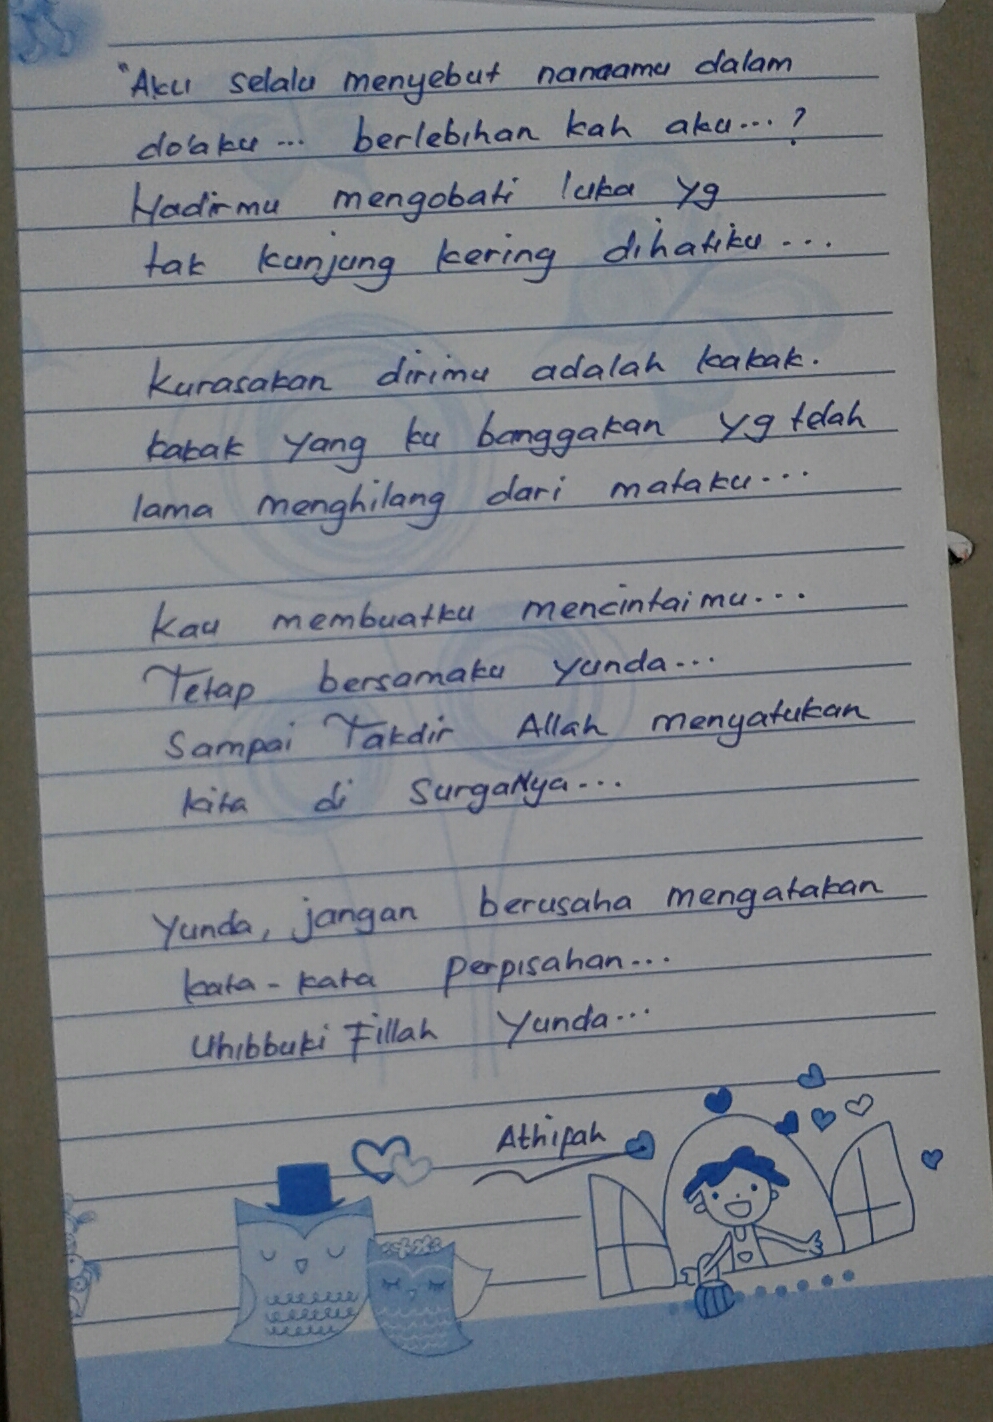 "Aku selalu menyebut nanaamu dalam
do'aku... berlebihan kah aku...?
Hadirmu mengobati luka yg
tak kunjung kering dihatiku...
kurasakan dirimu adalah kakak.
kakak yang ku banggakan yg telah
lama menghilang dari mataku...
Kau membuatku mencintaimu...
Tetap bersamaku yunda...
Sampai Takdir Allah menyatukan
kita di SurgaNya...
Yunda, jangan berusaha mengatakan
kata-kata perpisahan...
Uhibbuki Fillah Yunda...
Athifah